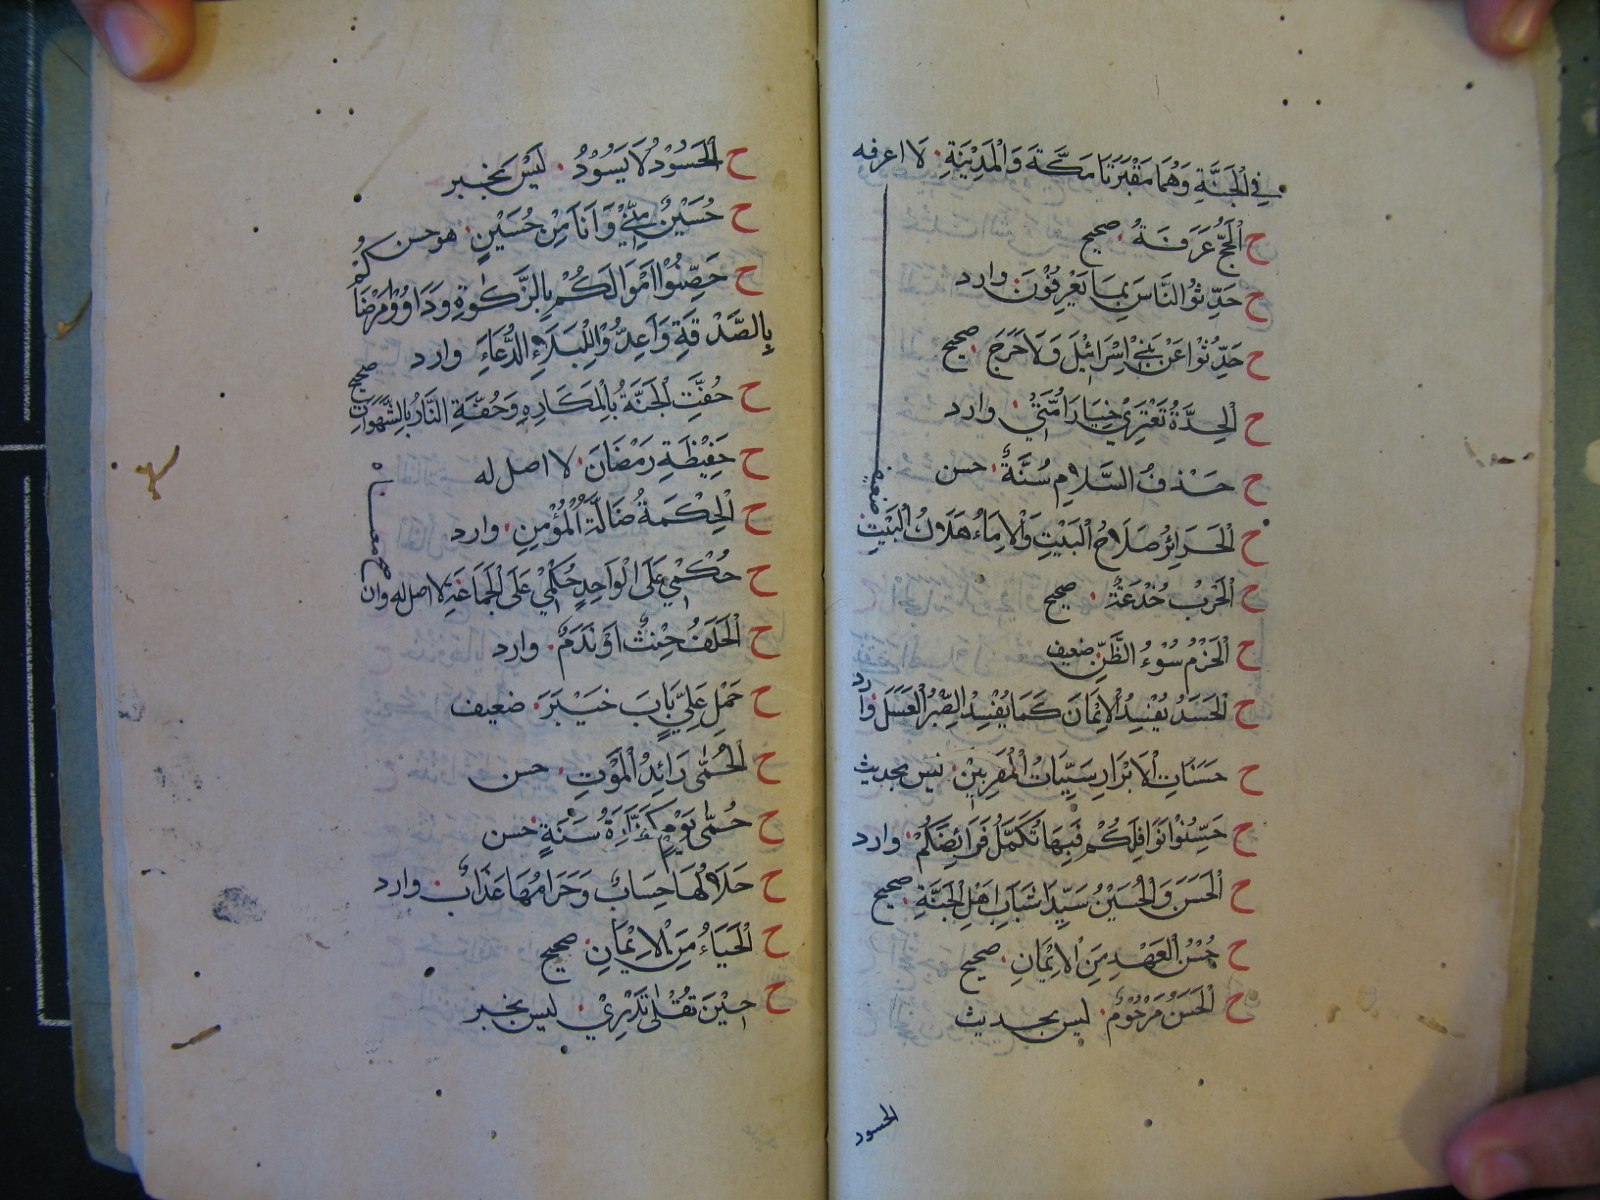 في الْجَنَّةِ وَهُمَا مَقْبَرَتَا مَكَّةَ وَالْمَدِيْنَةِ لا اعرفه
ح اَلْحَجُّ عَرَفَةُ صحيح
ح حَدِّثُوا النَّاسَ بِمَا يَعْرِفُوْنَ وارد
ح حَدِّثُوْا عَنْ بَنِيْ اِسْرَائِيْلَ وَلَا حَرَجَ صحيح
ح اَلْحِدَّةُ تَعْتَرِيْ خِيَارَ اُمَّتِيْ وارد
ح حَذْفُ السَّلَامِ سُنَّةٌ حسن
ح اَلْحَرَائِرُ صَلَاحُ الْبَيْتِ وَالْاِمَاءُ هَلَاكُ الْبَيْتِ ضعيف
ح اَلْحَرْبُ خُدْعَةٌ صحيح
ح اَلْحَزْمُ سُوْءُ الظَّنِّ ضعيف
ح اَلْحَسَدُ يُفْسِدُ الْاِيْمَانَ كَمَا يُفْسِدُ الصِّبْرُ الْعَسَلَ وارد
ح حَسَنَاتُ الْاَبْرَارِ سَيِّئَاتُ الْمُقَرَّبِيْنَ ليس بحديث
ح حَسِّنُوْا نَوَافِلَكُمْ فَبِهَا تُكَمَّلُ فَرَائِضُكُمْ وارد
ح اَلْحَسَنُ وَالْحُسَيْنُ سَيِّدَا شَبَابِ اَهْلِ الْجَنَّةِ صحيح
ح حُسْنُ الْعَهْدِ مِنَ الْاِيْمَانِ صحيح
ح اَلْحَسَنُ مَرْحُوْمٌ ليس بحديث
الحسود
ح اَلْحَسُوْدُ لَا يَسُوْدُ لَيْسَ بخبر
ح حُسَيْنٌ مِنِّيْ وَاَنَا مِنْ حُسَيْنٍ هو حسن
ح حَصِّنُوْا اَمْوَالَكُمْ بِالزَّكٰوةِ وَدَاوُوْا مَرْضَاكُمْ
بِالصَّدْقَةِ وَاَعِدُّوْا لِلْبَلَاءِ الدُّعَاءَ وارد
ح حُفَّتِ الْجَنَّةُ بِالْمَكَارِهِ وَحُفَّةِ النَّارُ بِالشَّهَوَاتِ صحيح
ح حَفِيْظَةِ رَمَضَانَ لا اصل له
ح اَلْحِكْمَةُ ضَالَّةُ الْمُؤْمِنِ وارد
ح حُكْمِيْ عَلَى الْوَاحِدِ حُكْمِيْ عَلَى الْجَمَاعَةِ لا اصل له وان صح معناه
ح اَلْحَلَفُ حِنْثٌ اَوْ نَدَمٌ وارد
ح حَمْلِ عَلِيٍّ بَابَ خَيْبَرَ ضعيف
ح اَلْحُمّٰى رَائِدُ الْمَوْتِ حسن
ح حُمّٰى يَوْمٍ كَفَّارَةُ سَنَةٍ حسن
ح حَلَالُهَا حِسَابٌ وَحَرَامُهَا عَذَابٌ وارد
ح اَلْحَيَاءُ مِنَ الْاِيْمَانِ صحيح
ح حِيْنَ تَقْلٰى تَدْرِيْ ليس بخبر